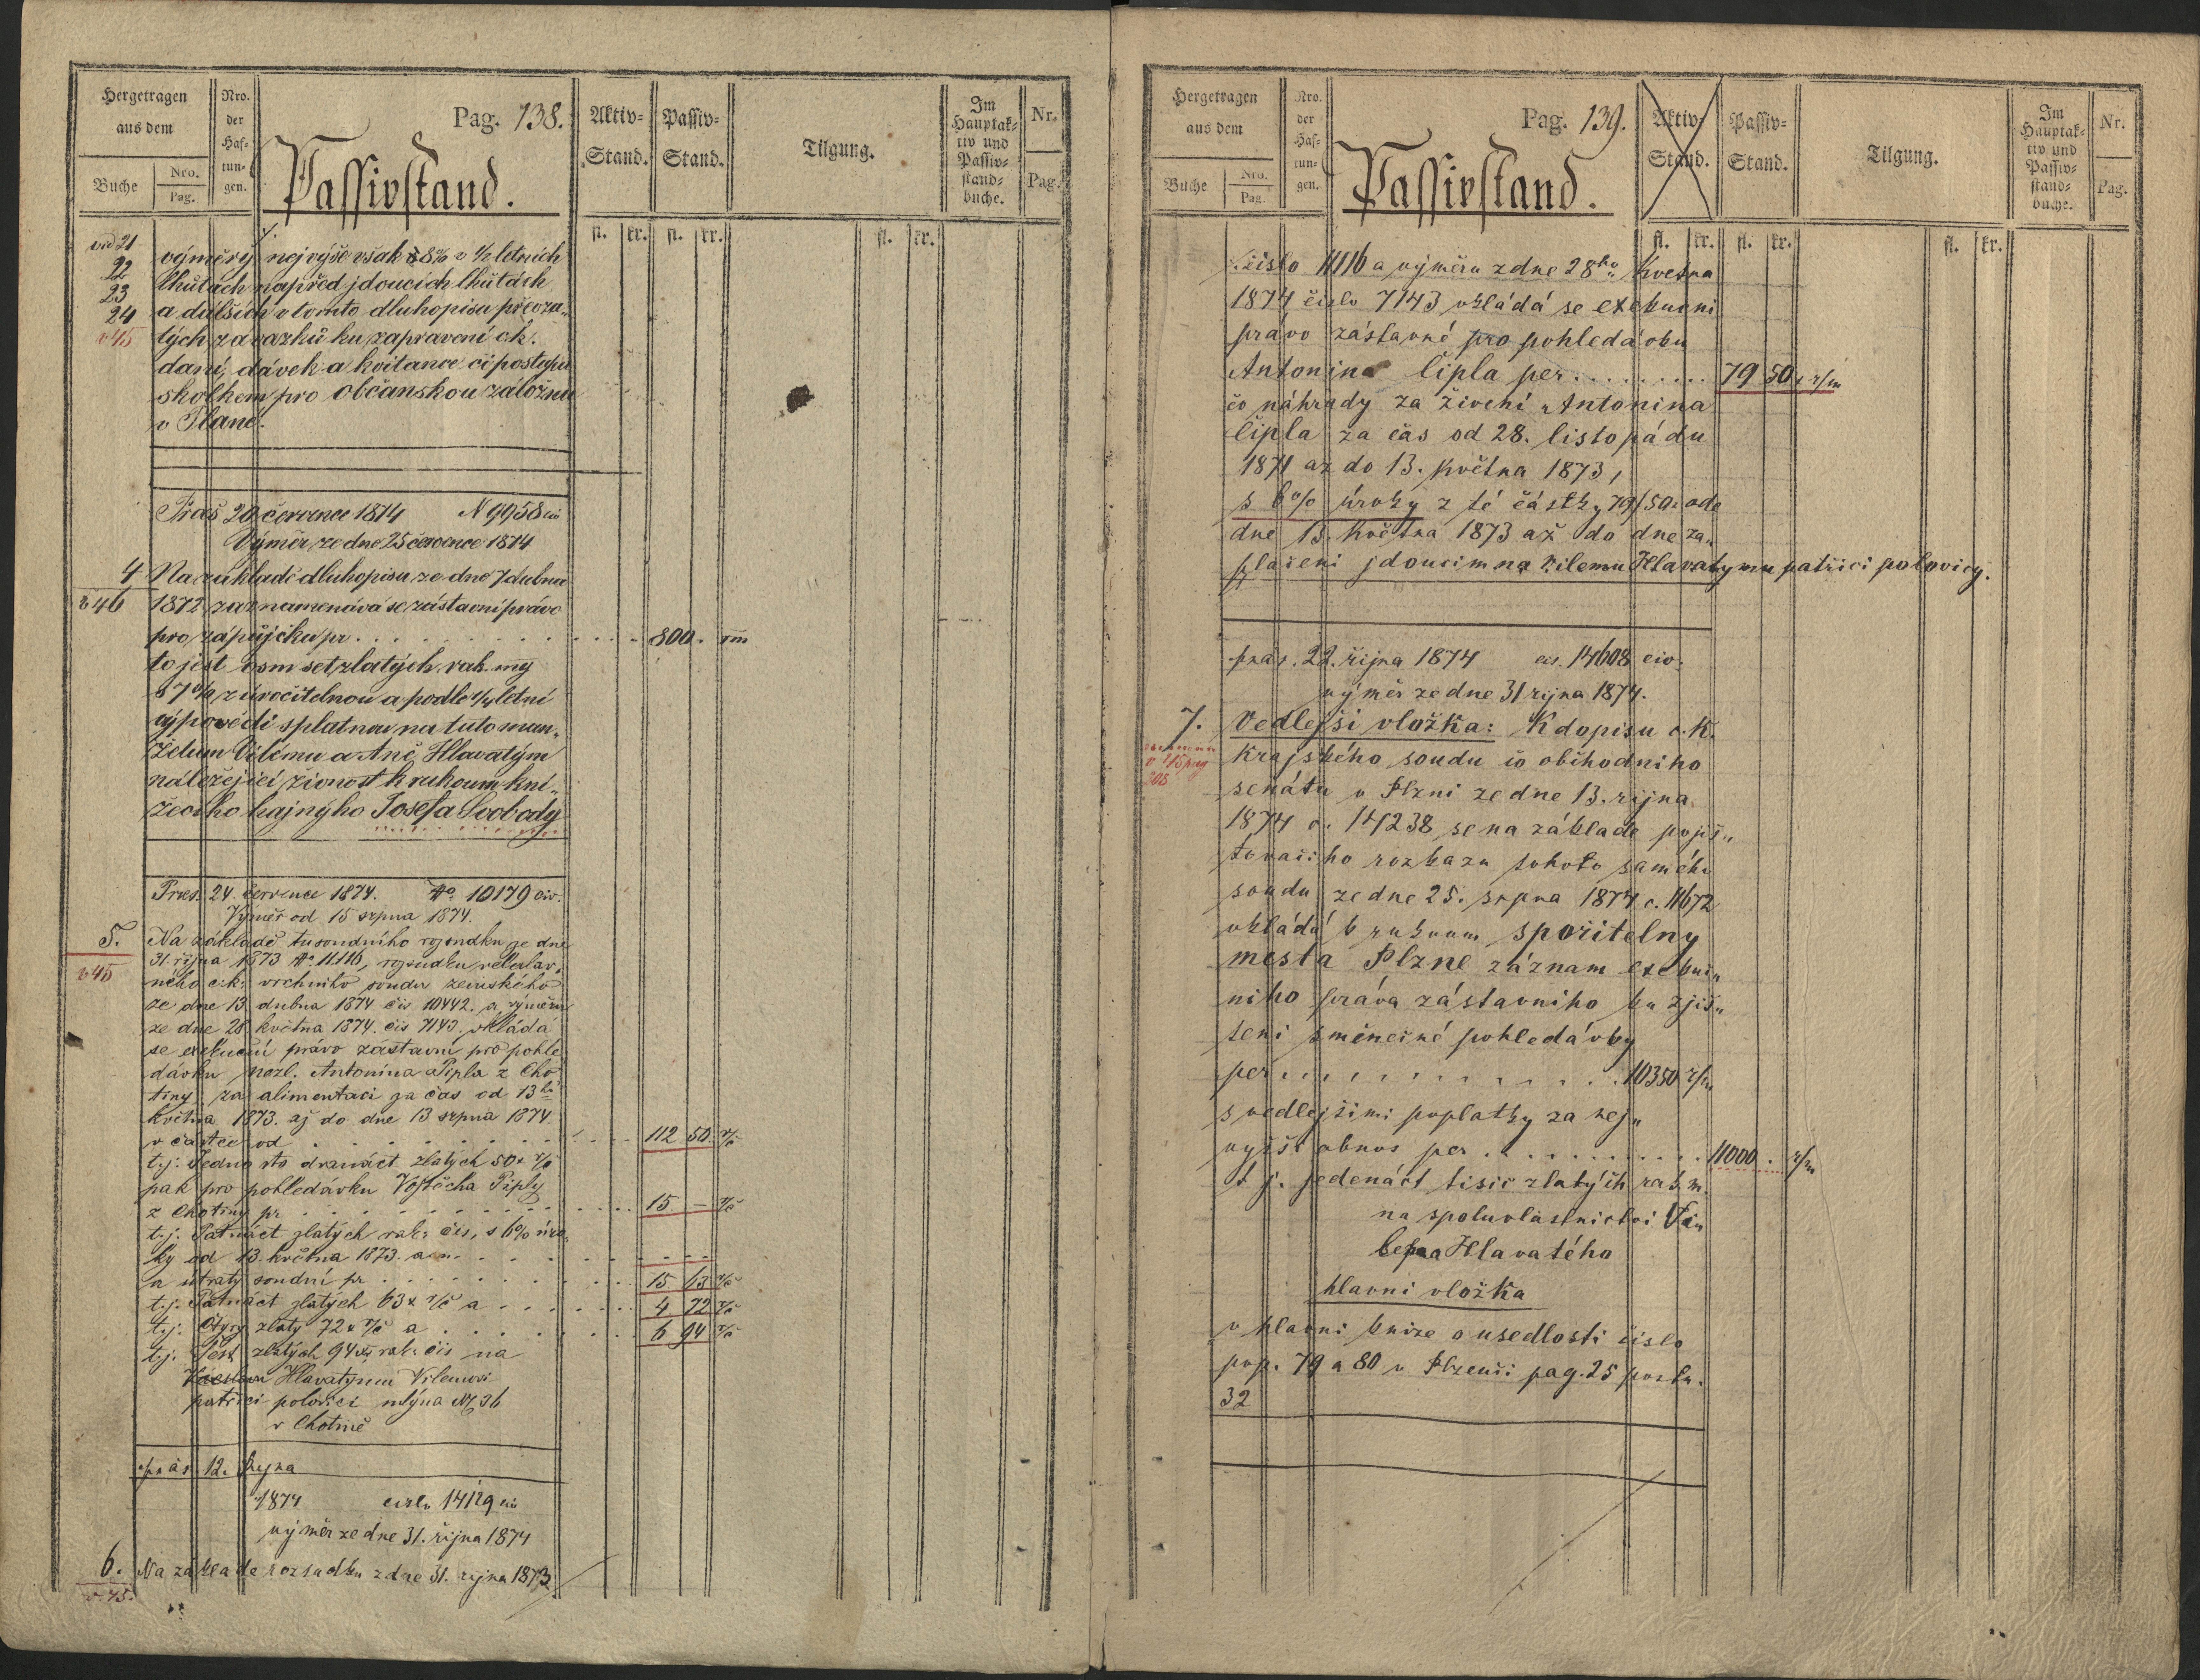 Hergetragen
aus dem
Buche
Nro.
Pag.
Nro.
der
Haf-
tun-
gen.
Pag. 138.
Passivstand.
Aktiv-
Stand.
Passiv-
Stand.
Tilgung.
Im
Hauptak-
tiv und
Passiv-
stand-
buche.
Nr.
Pag.
fl. kr. fl. kr. fl. kr.
vid 21
22
23
24
výměry nejvýše však 8% v ½ letních
lhůtách napřed jdoucích lhůtách
a dalších v tomto dluhopisu převza„
tých závazků ku zapravení c.k.
daní, dávek a kvitance či postupu
skolkem pro Občanskou záložnu
v Plané.
Präs 20 července 1874 N 9958 civ
Výměr ze dne 25 července 1874
4 Na základě dluhopisu ze dne 7 dubna
v 46 1872 zaznamenává se zástavní právo
pro zápůjčku pr . . . . . . 800 . rm
to jest osm set zlatých rak. my
s 7% zúročitelnou a podle ¼ letní
výpovědi splatnou na tuto man„
želum Vilému a Aně Hlavatým
náležející živnost k rukoum kní„
žecího hajnýho Josefa Svobody
Präs. 24. července 1874. No 10179 civ.
Výměr od 15 srpna 1874.
5. Na základě tusoudního rozsudku ze dne
v 45 31. října 1873 No 11.116, rozsudku veleslav„
ného c.k. vrchního soudu zemského
ze dne 13 dubna 1874 čís 10442. a výměru
ze dne 28 května 1874. čís 7143. vkládá
se exekuční právo zástavní pro pohle
dávku nezl. Antonína Pipla z Cho
tiny za alimentaci za čas od 13ho
května 1873. až do dne 13 srpna 1874.
v částce od . . . . . . 112 50 rč
t.j. Jedno sto dvanáct zlatých 50 x rč
pak pro pohledávku Vojtěcha Piply
z Chotiny pr . . . . . . 15 — rč
t.j. Patnáct zlatých rak: čís, s 6% úro„
ky od 13. května 1873. a . . . . . .
a útraty soudní pr . . . . . . 15 63 rč
t.j. Patnáct zlatých 63 x rč a . . . . . . 4 72 rč
t.j. Čtyry zlaty 72 x rč a . . . . . . 6 94 rč
t.j. Šest zlatých 94 x rak: čís na
Václavu Hlavatýmu Vilemovi
patřící polovici mlýna N 36
v Chotině
präs 12. Října
1874 číslo 14129 civ
výměr ze dne 31. října 1874
6. Na základe rozsudku z dne 31. rijna 1873
v 45.
Hergetragen
aus dem
Buche
Nro.
Pag.
Nro.
der
Haf-
tun-
gen.
Pag. 139.
Passivstand.
Aktiv-
Stand.
Passiv-
Stand.
Tilgung.
Im
Hauptak-
tiv und
Passiv-
stand-
buche.
Nr.
Pag.
fl. kr. fl. kr. fl. kr.
číslo 11116 a výměru z dne 28ho Května
1874 číslo 7143 vkládá se exekucni
právo zástavné pro pohledávku
Antonina Čipla per . . . . . . 79 50 x r/m
čo náhrady za živení Antonina
Čipla za čas od 28. listopádu
1871 az do 13. Května 1873,
s 6% úroky z té částky 79 f 50 x ode
dne 13. Května 1873 až do dne za„
placeni jdoucim na Vilemu Hlavatymu patřici polovicy.
präs. 22. října 1874 čís. 14608 civ.
výměr ze dne 31 rijna 1874.
7. Vedlejši vložka: K dopisu c. K.
Krajského soudu čo obchodniho
senátu v Plzni ze dne 13. rijna
1874 č. 14238 se na základe pojiš„
tovaciho rozkazu tohoto saméhu
soudu ze dne 25. srpna 1874 č. 11672
vkládá k rukoum spořitelny
mesta Plzne záznam exekuc„
niho práva zástavniho ku zjiš„
teni směnečné pohledávky
per . . . . . . 10350 r/m
s vedlejšimi poplatky za nej„
vyšší obnos per . . . . . . 11000 . r/m
t j. jedenáct tisíc zlatých rak m.
na spoluvlastnictvi Vi„
lema Hlavatého
hlavni vložka
v hlavni knize o usedlosti číslo
pop. 79 a 80 v Plzenči pag. 25 postu.
32